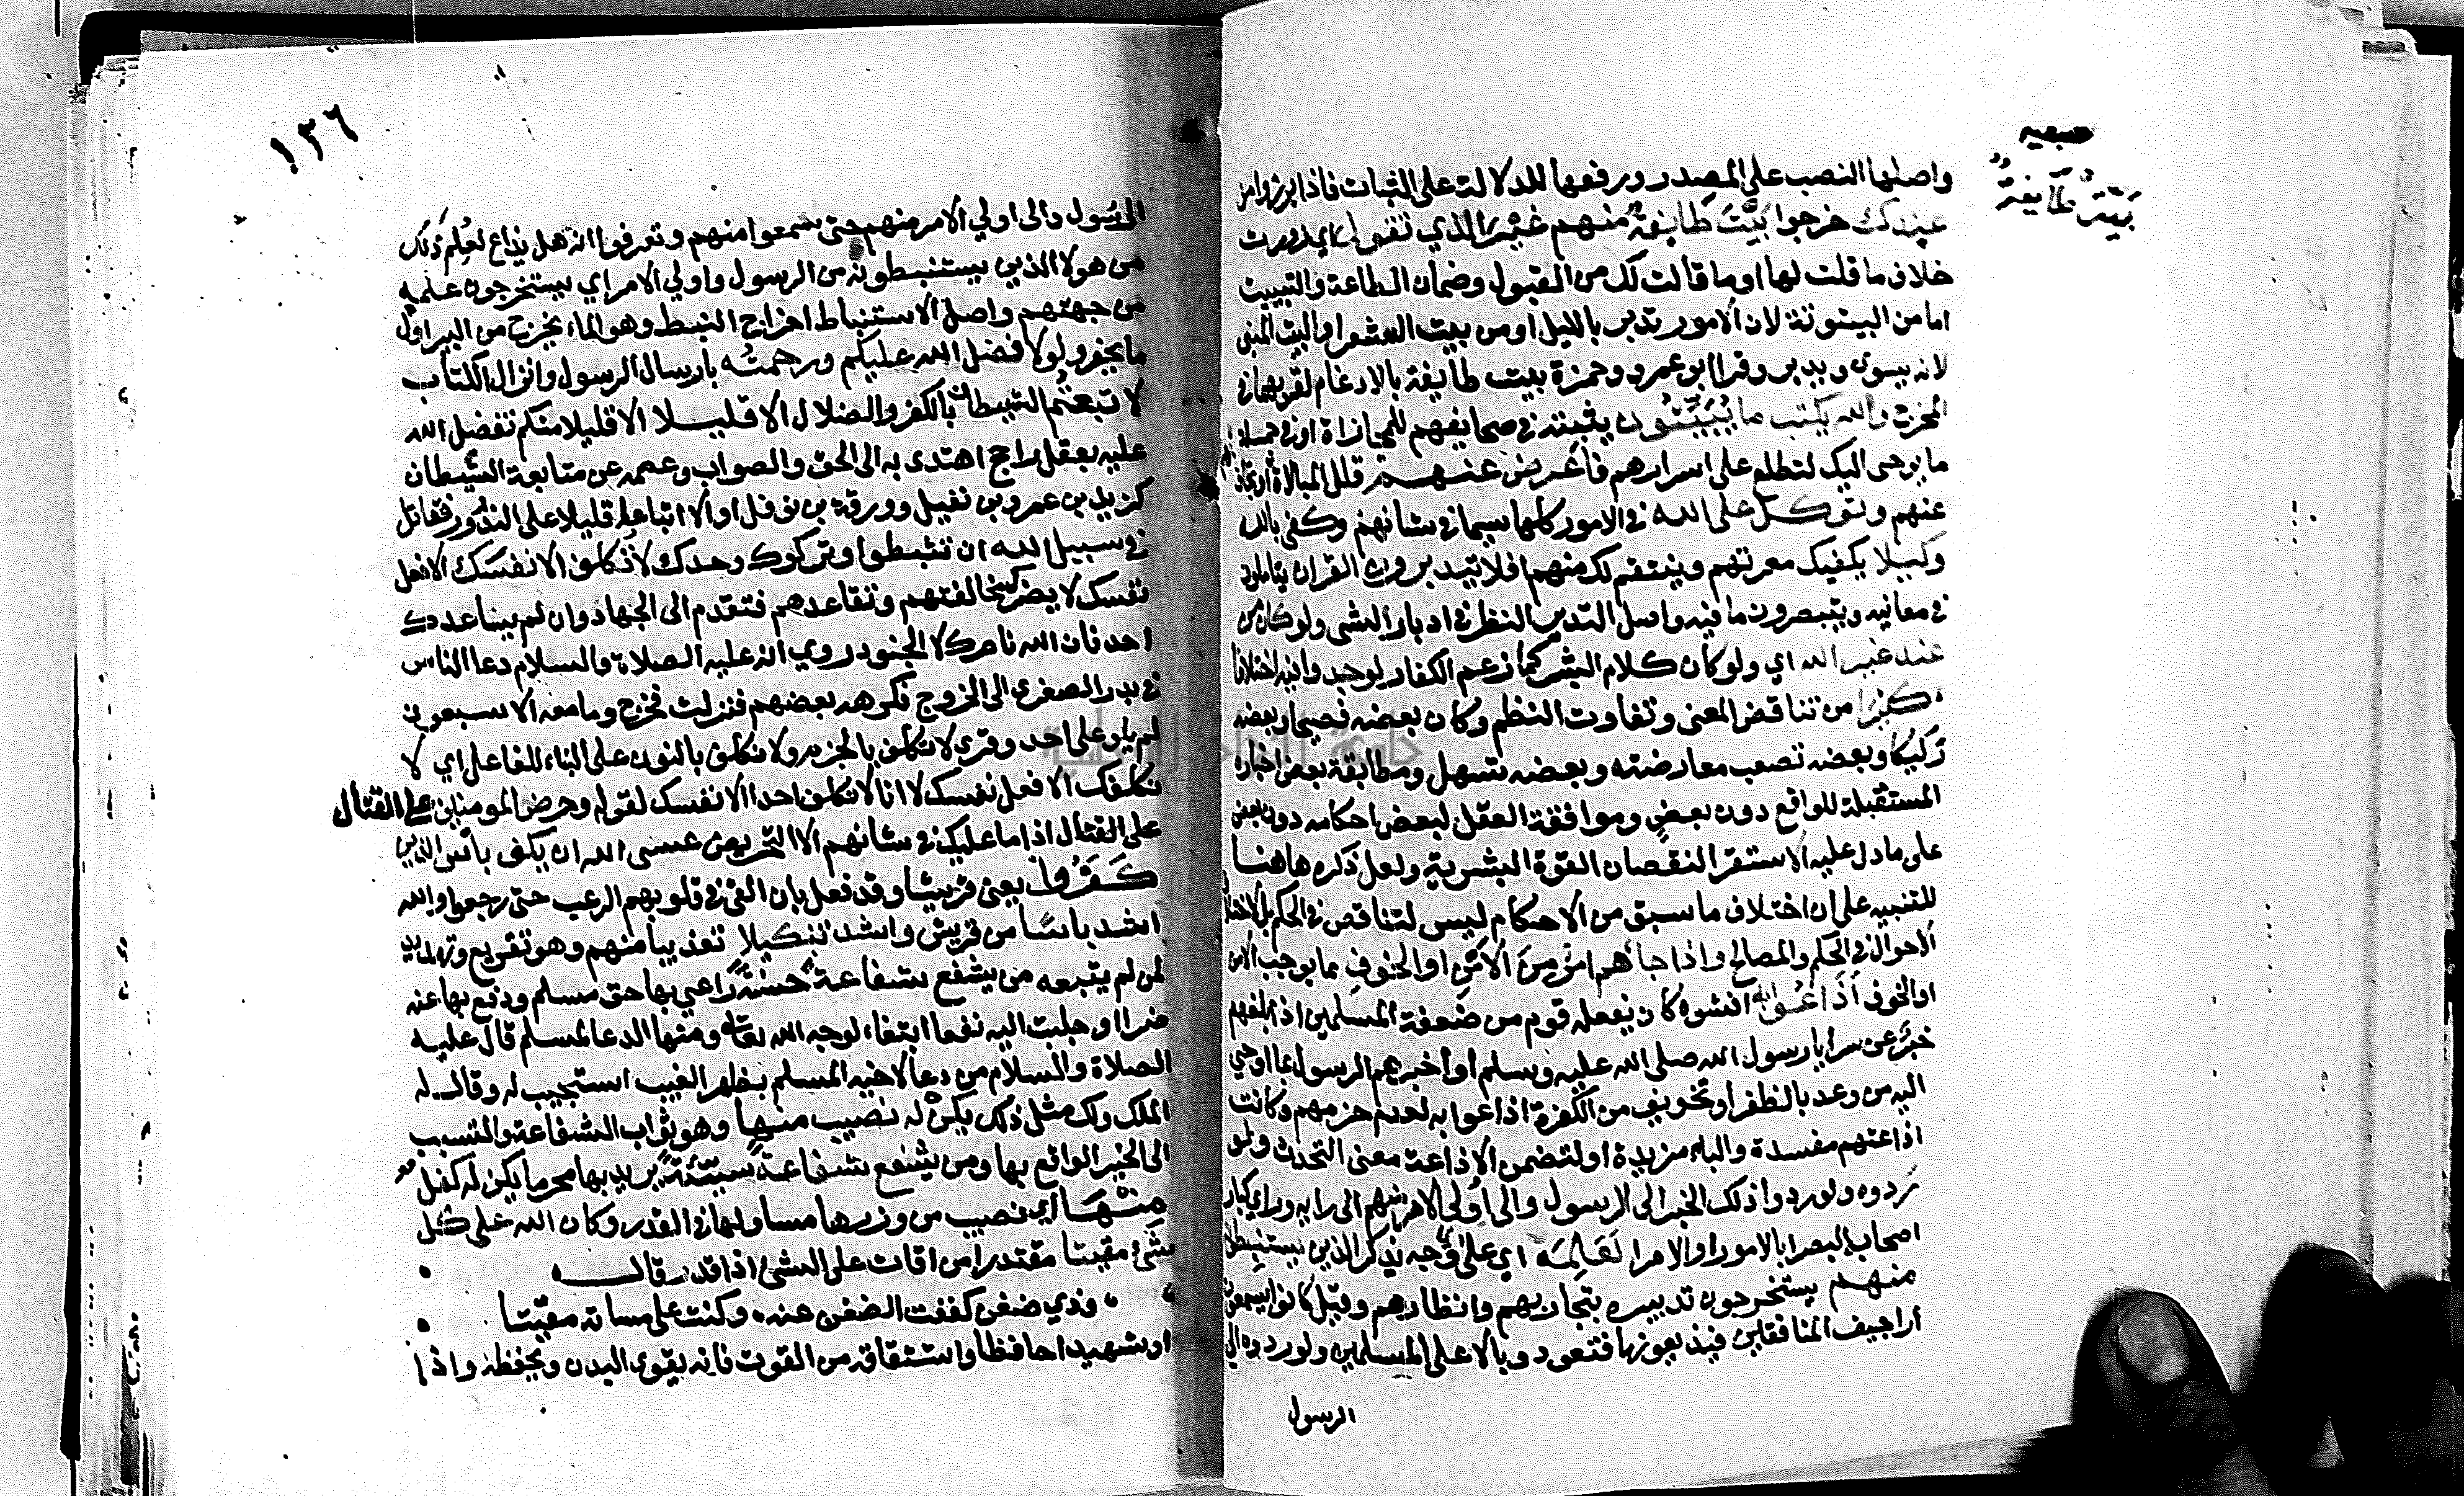 واصلها النصب على المصدر ورفعها للدلالة على الثبات فاذا برزوا من
عندك خرجوا بيت طايفة منهم غير الذي تقول اي زورت
خلاف ما قلت لها او ما قالت لك من القبول وضمان الطاعة والتبييت
اما من البيتوتة لان الامور تدبر بالليل او من بيت الشعر او البيت المبني
لانه يسوى ويدبر وقرا ابو عمرو وحمزة بيت طايفة بالادغام لقربهما في
المخرج والله يكتب ما يبيتون يثبته في صحايفهم للمجازاة او في جملة
ما يوحى اليك لتطلع على اسرارهم فاعرض عنهم قلل المبالاة او تجاف
عنهم وتوكل على الله في الامور كلها سيما في شانهم وكفى بالله
وكيلا يكفيك معرتهم وينتقم لك منهم افلا يتدبرون القران يتاملون
في معانيه ويتبصرون ما فيه واصل التدبر النظر في ادبار الشي ولو كان من
عند غير الله اي ولو كان كلام البشر كما زعم الكفار لوجدوا فيه اختلافا
كثيرا من تناقض المعنى وتفاوت النظم وكان بعضه فصيحا وبعضه
ركيكا وبعضه تصعب معارضته وبعضه تسهل ومطابقة بعض اخباره
المستقبلة للواقع دون بعض وموافقة العقل لبعض احكامه دون بعض
على ما دل عليه الاستقرا لنقصان القوة البشرية ولعل ذكره هاهنا
للتنبيه على ان اختلاف ما سبق من الاحكام ليس لتناقض في الحكم بل لاختلاف
الاحوال في الحكم والمصالح واذا جاءهم امر من الامن او الخوف مما يوجب الامن
او الخوف اذاعوا به افشوه كان يفعله قوم من ضعفة المسلمين اذا بلغهم
خبر عن سرايا رسول الله صلى الله عليه وسلم او اخبرهم الرسول بما اوحي
اليه من وعد بالظفر او تخويف من الكفرة اذاعوا به لعدم حزمهم وكانت
اذاعتهم مفسدة والباء مزيدة او لتضمن الاذاعة معنى التحدث ولو
ردوه ولو ردوا ذلك الخبر الى الرسول والى اولي الامر منهم الى رايه وراي كبار
اصحابه البصرا بالامور او الامرا لعلمه اي على وجه يذكر الذين يستنبطونه
منهم يستخرجون تدبيره بتجاربهم وانظارهم وقيل كانوا يسمعون
اراجيف المنافقين فيذيعونها فتعود وبالا على المسلمين ولو ردوه الى
الرسول
بيت طايفة
١٣٦
الرسول والى اولي الامر منهم حتى يسمعوا منهم وتعرفوا انه هل يذاع لعلم ذلك
من هولا الذين يستنبطونه من الرسول واولي الامر اي يستخرجون علمه
من جهتهم واصل الاستنباط اخراج النبط وهو الماء يخرج من البير اول
ما يحفر ولولا فضل الله عليكم ورحمته بارسال الرسول وانزال الكتاب
لاتبعتم الشيطان بالكفر والضلال الا قليلا الا قليلا منكم تفضل الله
عليه بعقل راجح اهتدى به الى الحق والصواب وعصمه عن متابعة الشيطان
كزيد بن عمرو بن نفيل وورقة بن نوفل او الا اتباعا قليلا على الندور فقاتل
في سبيل الله ان تثبطوا وتركوك وحدك لا تكلف الا نفسك الا فعل
نفسك لا يضرك مخالفتهم وتقاعدهم فتقدم الى الجهاد وان لم يساعدك
احد فان الله ناصرك لا الجنود روي انه عليه الصلاة والسلام دعا الناس
في بدر الصغرى الى الخروج فكرهه بعضهم فنزلت فخرج وما معه الا سبعون
لم يلو على احد وقرى لا تكلف بالجزم ولا نكلف بالنون على البناء للفاعل اي لا
نكلفك الا فعل نفسك لا انا لا نكلف احدا الا نفسك لقوله وحرض المومنين على القتال
على القتال اذ ما عليك في شانهم الا التحريض عسى الله ان يكف باس الذين
كفروا يعني قريشا وقد فعل بان القى في قلوبهم الرعب حتى رجعوا والله
اشد باسا من قريش واشد تنكيلا تعذيبا منهم وهو تقريع وتهديد
لمن لم يتبعه من يشفع شفاعة حسنة راعي بها حق مسلم ودفع بها عنه
ضرا او جلبت اليه نفعا ابتغاء لوجه الله تعالى ومنها الدعا لمسلم قال عليه
الصلاة والسلام من دعا لاخيه المسلم بظهر الغيب استجيب له وقال له
الملك ولك مثل ذلك يكن له نصيب منها وهو ثواب الشفاعة والتسبب
الى الخير الواقع بها ومن يشفع شفاعة سيئة يريد بها محرما يكن له كفل
منها اي نصيب من وزرها مساو لها في القدر وكان الله على كل
شيء مقيتا مقتدرا من اقات على الشي اذا قدر قال
وذي ضغن كففت الضغن عنه وكنت على مساته مقيتا
او شهيدا حافظا واشتقاقه من القوت فانه يقوي البدن ويحفظه واذا